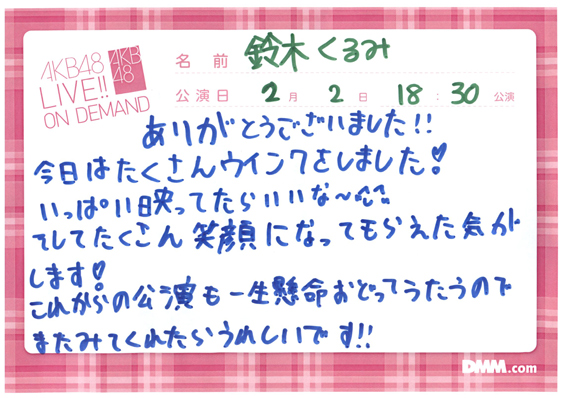 AKB48
LIVE!!
ON DEMAND
AKB
48
名前 鈴木くるみ
公演日 2月 2日 18:30 公演
ありがとうございました!!
今日はたくさんウインクをしました!
いっぱい映ってたらいいな〜^^
そしてたくさん笑顔になってもらえた気が
します!
これからの公演も一生懸命おどってうたうので
またみてくれたらうれしいです!!
DMM.com